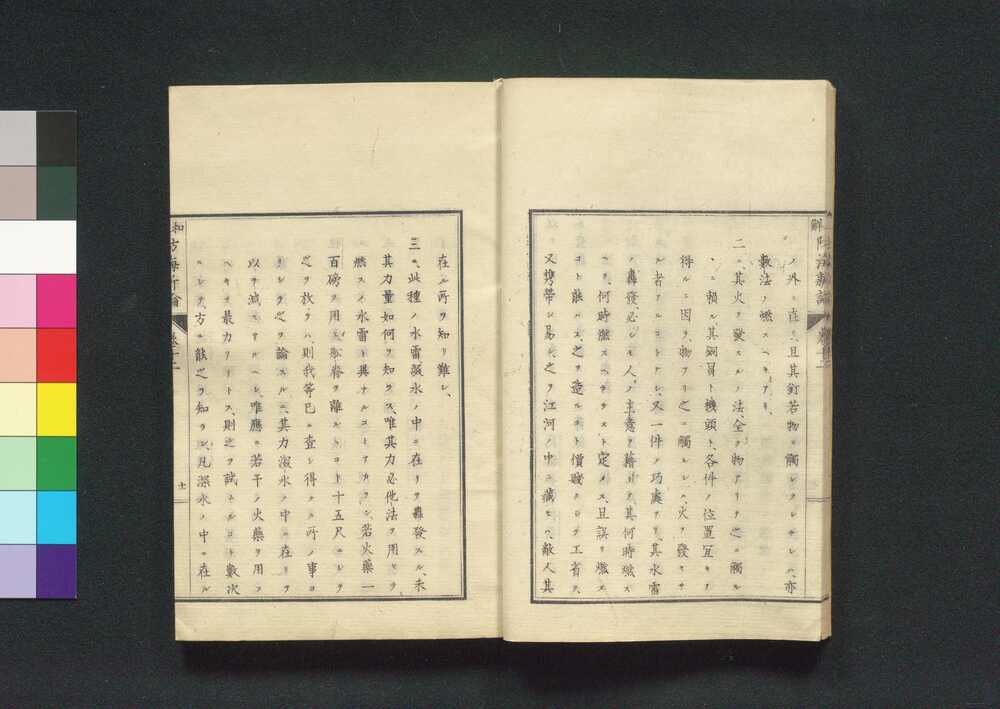 ノ外ニ在ニ且其釘若物ニ觸レクレサレハ、亦
數法ノ燃スヘキアリ、
二ハ其火ヲ發スルノ法、全ク物アリテ之ニ觸ル
ヽニ賴ル、其銅冒ト機頭ト、各件ノ位置宜キヲ
得ルニ因ヲ、物アリ之ニ觸ルレハ、火ヲ發セサ
ル者アルコトナシ、又一件ノ巧處アリ、其水雷
ノ轟發必シモ人ノ主意ヲ藉リテ、其何時燃ス
ヘク、何時燃スヘカラスト定メス、且誤リ燃ス
コト能ハス、之ヲ造ルコト價賤クシテ工省キ、
又携帶シ易ク、之ヲ江河ノ中ニ藏セハ、敵人其
在ル所ヲ知リ難シ、
三ハ、此種ノ水雷、深水ノ中ニ在リテ轟發スル、未タ
其力量如何ヲ知ラス、唯其力必他法ヲ用ヒテ
燃スノ水雷ト異ナルコトナカラン、若火藥一
百磅ヲ用ヒ、船脊ヲ離ルヽコト十五尺ニシテ
之ヲ放タハ、則我等已ニ查シ得タル所ノ事ヨ
リシテ之ヲ論スルニ、其力深水ノ中ニ在リテ
以テ減セサルヘシ、唯應ニ若干ノ火藥ヲ用フ
ヘキヲ最力アリトス、則之ヲ試ムルコト數次
ニシテ、方ニ能之ヲ知ラン、凡深水ノ中ニ在ル
卷十二
十